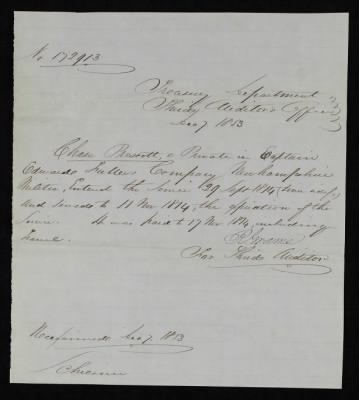 No 172913
Treasury Department
Third Auditor's Office
Dec 7 1853
Chase Prescott, a Private in Captain
Edward Fuller's Company New hampshire
Militia, Entered the Service 29 Sept 1814,
and served to 11 Nov 1814, the expiration of the
Service. He was paid to 17 Nov 1814, including
Travel.
For Third Auditor
Dec 7. 1853